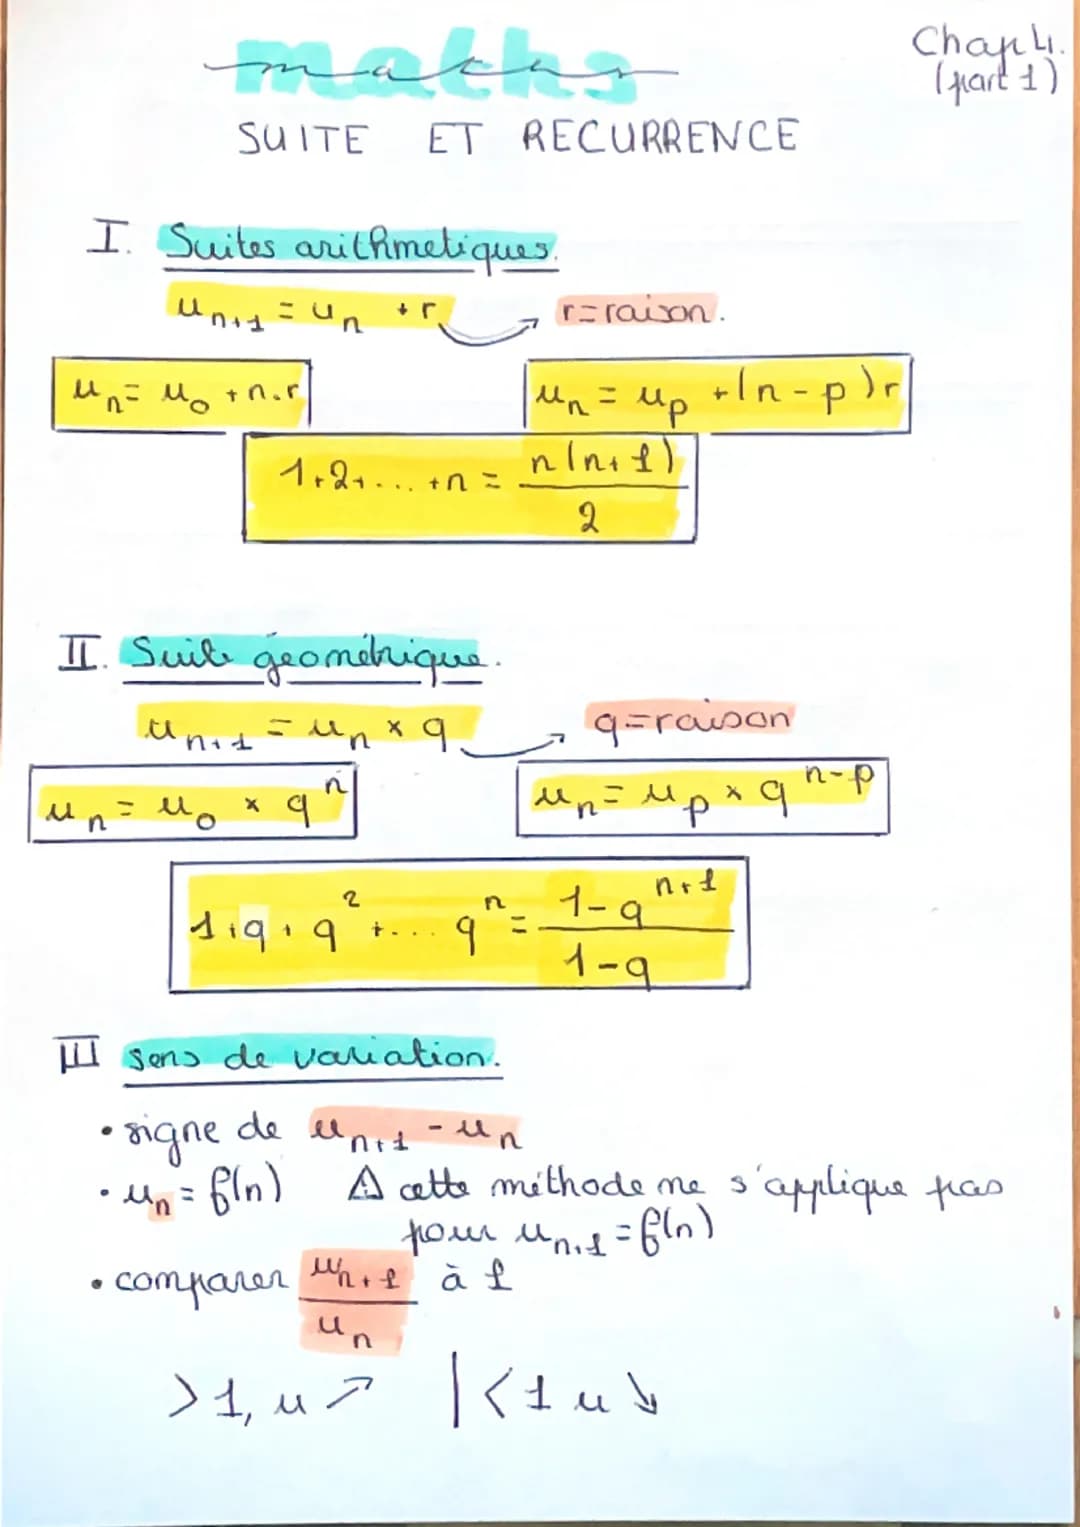 maths
Chap 4.
(part 1)
SUITE ET RECURRENCE
I. Suites arithmetiques.
u_{n+1} = u_n + r → r=raison.
u_n = u_0 + n.r
u_n = u_p + (n-p)r
1+2+... +n = n(n+1)/2
II. Suite géométrique.
u_{n+1} = u_n × q → q=raison
u_n = u_0 × q^n
u_n = u_p × q^{n-p}
1+q+q^2+... q^n = (1-q^{n+1})/(1-q)
III sens de variation.
• signe de u_{n+1} - u_n
• u_n = f(n) ⚠ cette méthode ne s'applique pas
pour u_{n+1} = f(n)
• comparer u_{n+1}/u_n à 1
>1, u ↗ | <1 u ↘